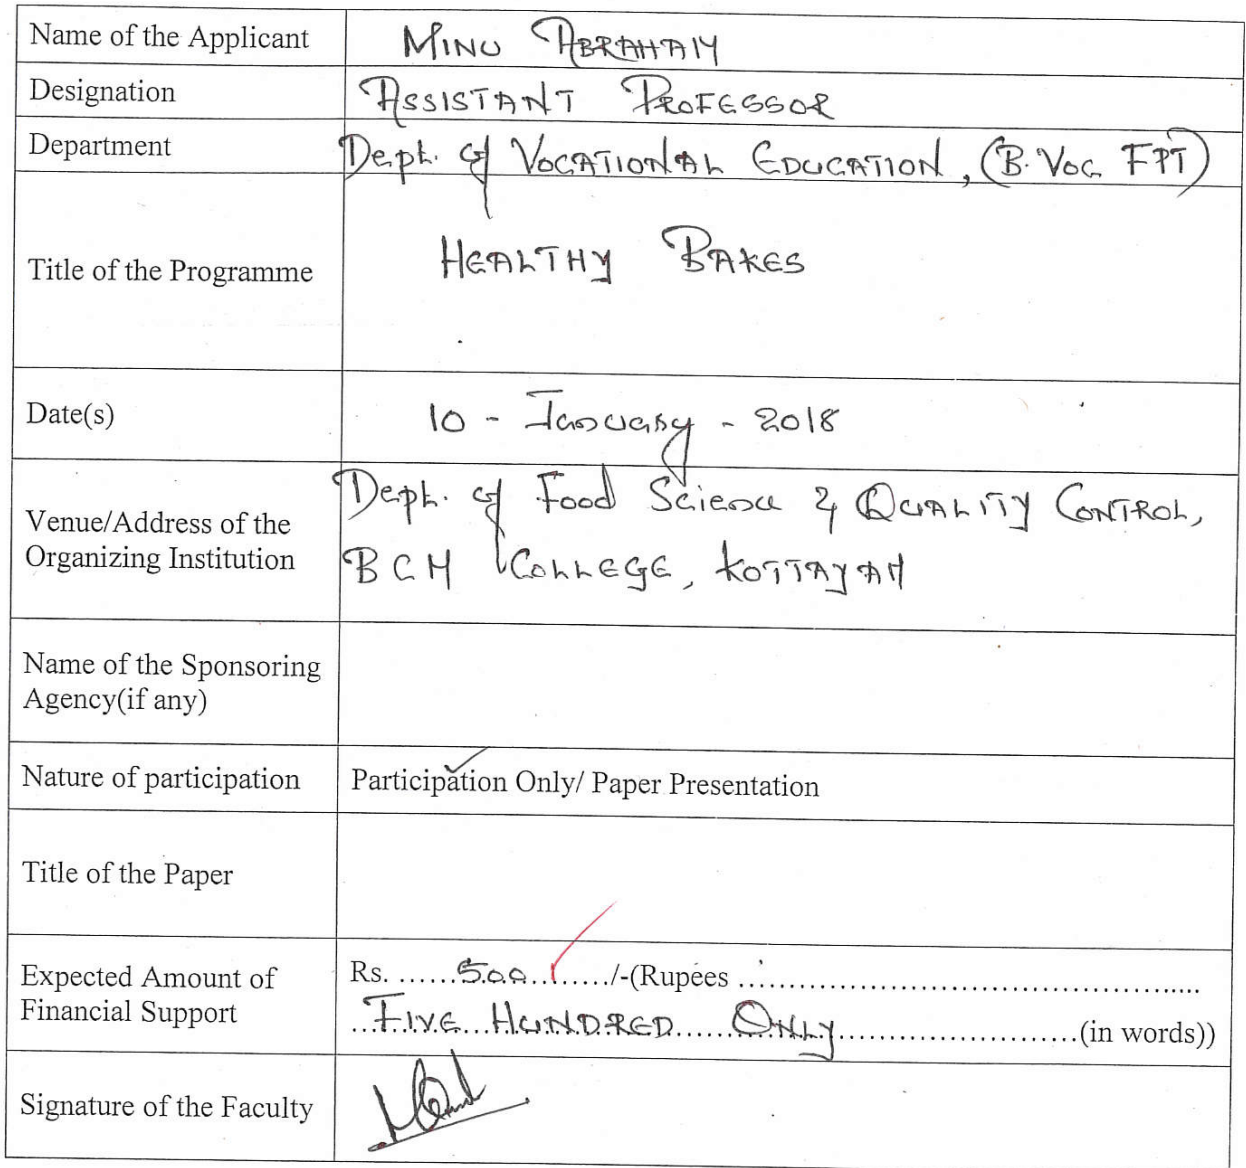 Name of the Applicant MINU ABRAHAM
Designation ASSISTANT PROFESSOR
Department Dept. of VOCATIONAL EDUCATION, (B.Voc FPT)
Title of the Programme HEALTHY BAKES
Date(s) 10 - January - 2018
Venue/Address of the Organizing Institution
Dept. of Food Science & QUALITY CONTROL,
BCM COLLEGE, KOTTAYAM
Name of the Sponsoring
Agency(if any)
Nature of participation Participation Only/ Paper Presentation
Title of the Paper
Expected Amount of
Financial Support
Rs. ......500........./-(Rupees ................................................
...FIVE...HUNDRED......ONLY........................(in words))
Signature of the Faculty